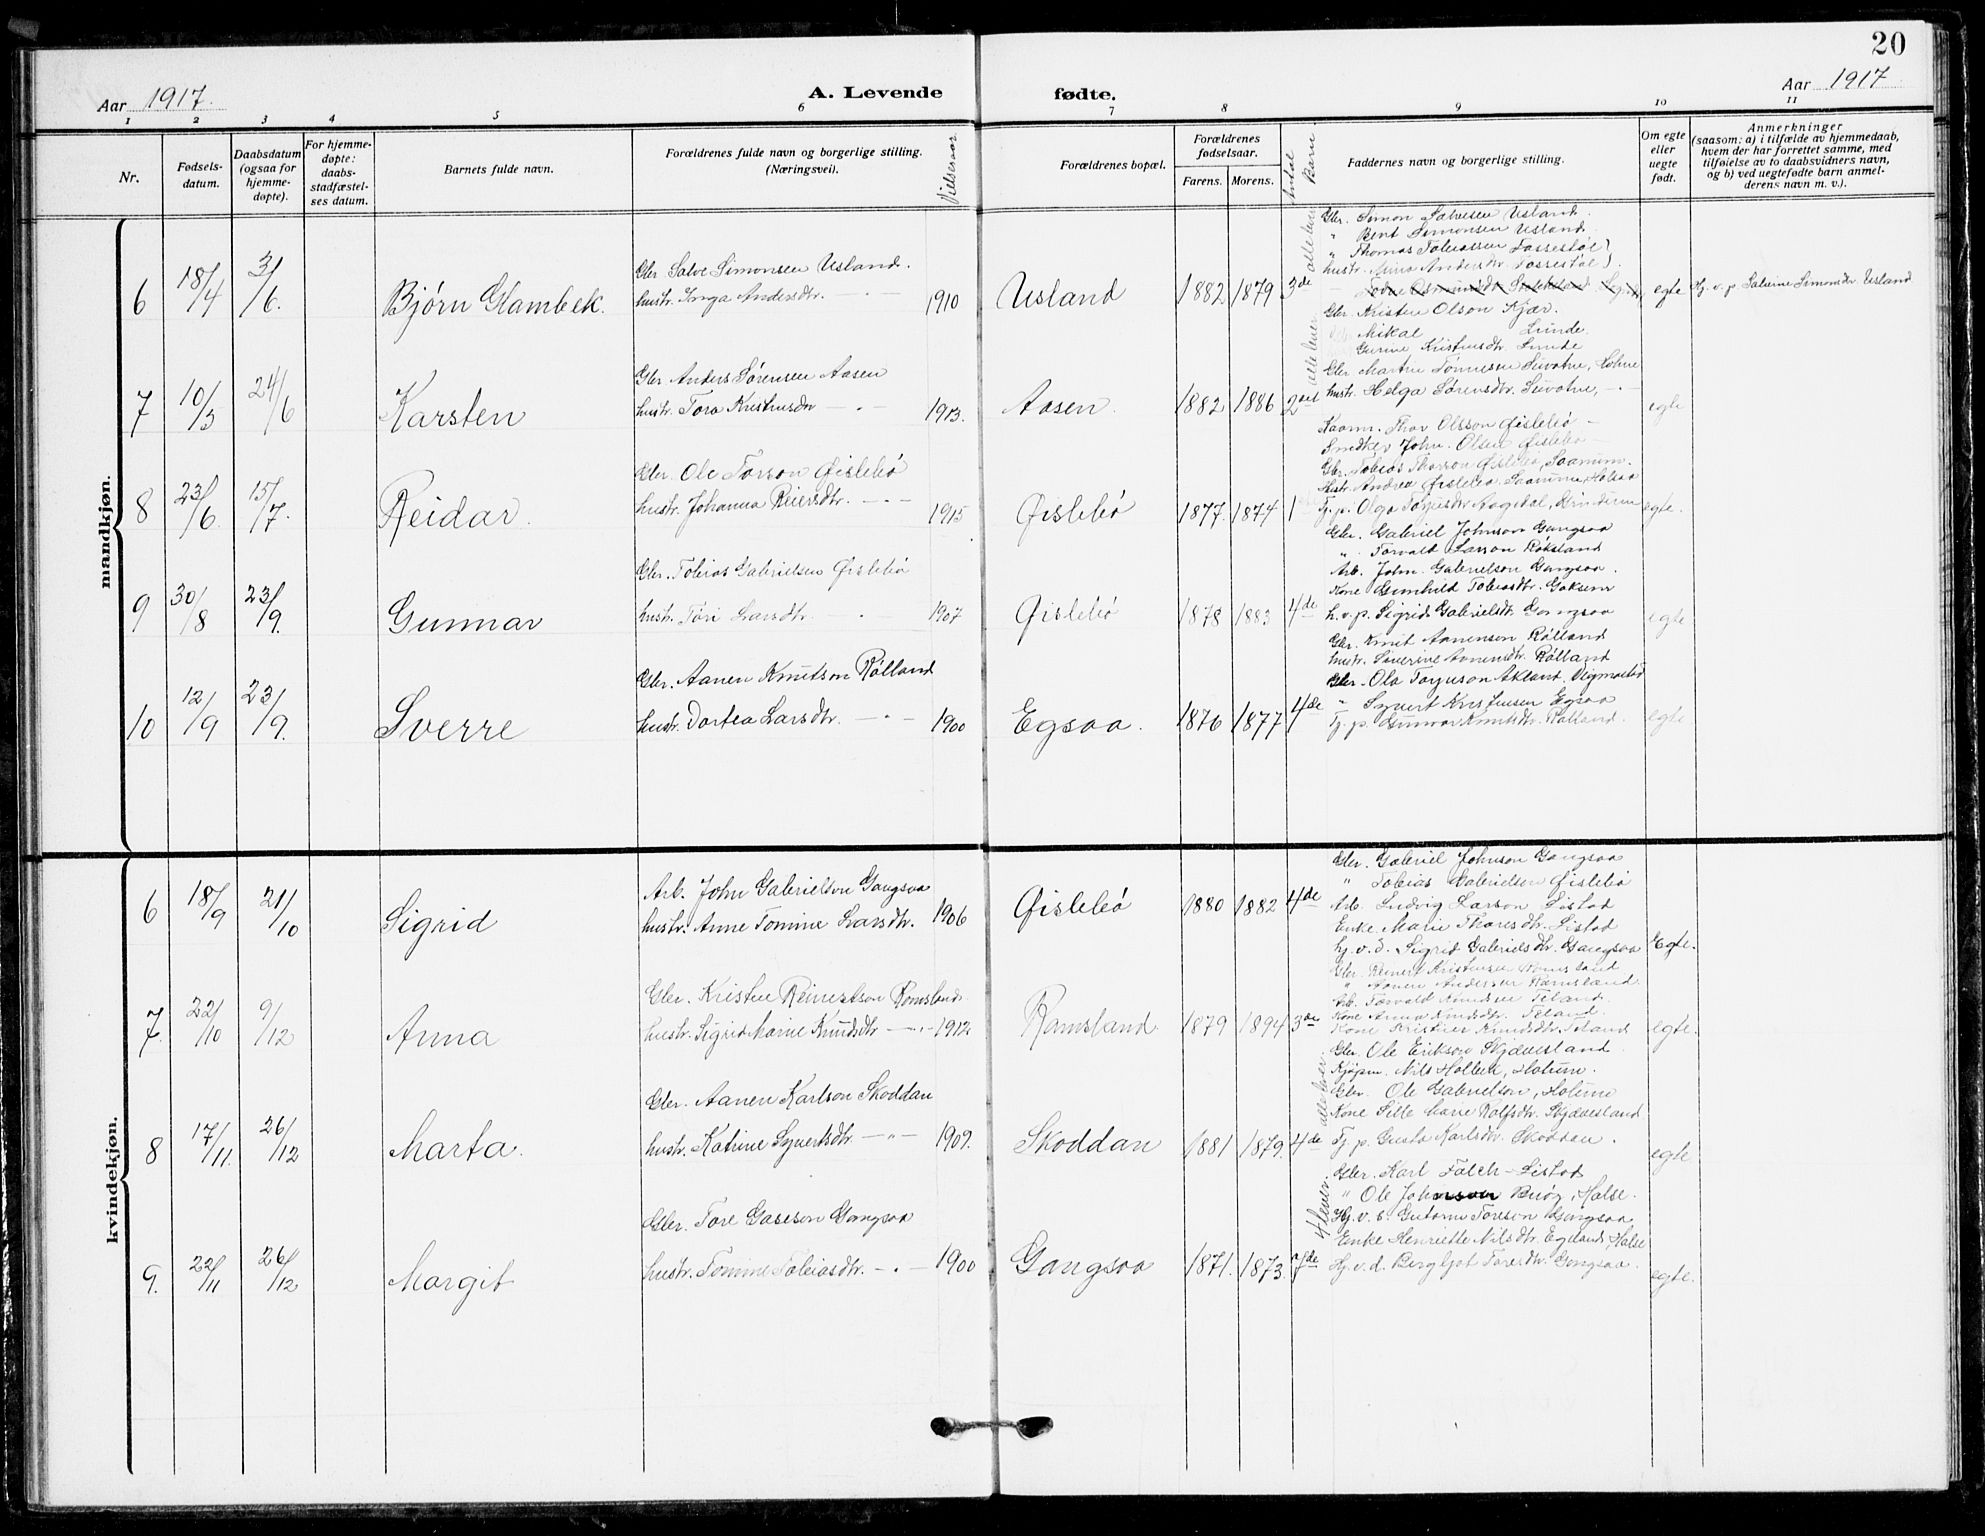 20
Aar 1917.
A. Levende fødte.
Aar 1917
1 2 3 4 5 6 7 8 9 10 11
Nr.
Fødsels-
datum.
Daabsdatum
(ogsaa for
hjemme-
døpte).
For hjemme-
døpte:
daabs-
stadfæstel-
ses datum.
Barnets fulde navn.
Forældrenes fulde navn og borgerlige stilling.
(Næringsvei).
Vielsesaar
Forældrenes bopæl.
Forældrenes
fødselsaar.
Farens. Morens.
Antal
Barn
Faddernes navn og borgerlige stilling.
Om egte
eller
uegte
født.
Anmerkninger
(saasom: a) i tilfælde av hjemmedaab,
hvem der har forrettet samme, med
tilføielse av to daabsvidners navn,
og b) ved uegtefødte barn anmel-
derens navn m. v.).
mandkjøn.
6 18/4 3/6. Bjørn Glambek.
Gbr Salve Simonsen Usland.
hustr. Inga Andersdtr. - " - 1910
Usland 1882 1879 3de
alle lever
Gbr. Simon Salvesen Usland.
" Bent Simonsen Usland.
" Thomas Tobiassen Fossestøl
hustr. Anna Andersdtr. Fossestøl
egte
Hj. v. p. Salvine Simonsdtr. Usland
7 10/5 24/6 Karsten
Gbr Anders Sørensen Aasen
hustr. Tora Kristensdtr - " - 1913.
Aasen. 1882 1886 2det
alle lever
Gbr. Kristen Olson Kjær.
Mikal Lunde.
Gurine Kristensdtr. Lunde
Gbr Martin Tønnesen Sivatne, Holme
hustr. Helga Sørensdtr. Sivatne, - " -
egte
8 23/6. 15/7. Reidar.
Gbr. Ole Torson Øislebø
hustr. Johanna Reiersdtr. - " - 1915
Øislebø 1877. 1874 1
Kaarm. Thor Olsson Øislebø -
John Olsen Øislebø -
Gbr. Tobias Thorson Øislebø,
Hustr. Andrea Øislebø
Tj. p. Olga
egte.
9 30/8 23/9. Gunnar
Gbr. Tobias Gabrielsen Øislebø
hustr. Tori Larsdtr. - " - 1907
Øislebø 1878 1883 4de
Gbr. Gabriel Johnson Gangsaa
" Torvald Larson Røksland
Arb. John Gabrielson Gangsaa.
Kone Gunhild Tobiasdtr.
h. v. p. Sigrid Gabrielsdtr. Gangsaa
egte
10 12/9 23/9. Sverre
Gbr. Aanen Knutson Rølland
hustr. Dortea Larsdtr. - " - 1900
Egsaa. 1876 1877 4de
Gbr. Knut Aanenson Rølland
hustr. Severine Aanensdtr. Rølland
Gbr. Ola Torjuson Akland, Vigmostad
" Syvert Kristensen Egsaa
Tj. p. Gunvor Knutsdtr. Rølland.
egte
kvindekjøn.
6 18/9 21/10 Sigrid
Arb. John Gabrielson Gangsaa
hustr. Anne Tomine Larsdtr. 1906
Øislebø 1880 1882 4de
Gbr. Gabriel Johnson Gangsaa
" Tobias Gabrielson Øislebø
Arb. Ludvig Larson Listad
Enke Marie Tharesdtr. Listad
hj. v. d. Sigrid Gabrielsdtr. Gangsaa
Egte.
7. 22/10 9/12 Anna
Gbr. Kristen Reinertson Romsland.
hustr. Sigrid Marie Knudsdtr - " - 1912
Ramsland 1879 1894 3de
Gbr. Reinert Kristensen Ramsland
" Aanen Andersen Ramsland.
Arb. Torvald Knudsen Teland.
Kone Anna Knudsdtr. Teland.
Kone Kristine Knudsdtr. Teland
egte.
8 17/11. 26/12 Marta.
Gbr. Aanen Karlson Skoddan
hustr. Katrine Syvertsdtr. - " - 1909.
Skoddan 1881 1879. 4de
alle lever
Gbr. Ole Erikson Skjævesland.
Kjøpm. Nils Holben, Holum.
Gbr. Ole Gabrielson, Holume
Kone Sille Marie Rolfsdtr. Skjævesland
Tj. p. Gusta Karlsdtr. Skoddan.
egte
9. 22/11 26/12 Margit
Gbr. Tore Gaseson Gangsaa
hustr. Tomine Tobiasdtr. - " - 1900
Gangsaa 1871. 1873. 7de
4 lever.
Gbr. Karl Falch - Listad
" Ole Johnson Buøy, Halse.
Hj. v. s. Gutorm Toreson Gangsaa
Enke Henriette Nilsdtr. Egeland, Halse
Hj. v. d. Bergljot Toresdtr. Gangsaa.
egte.